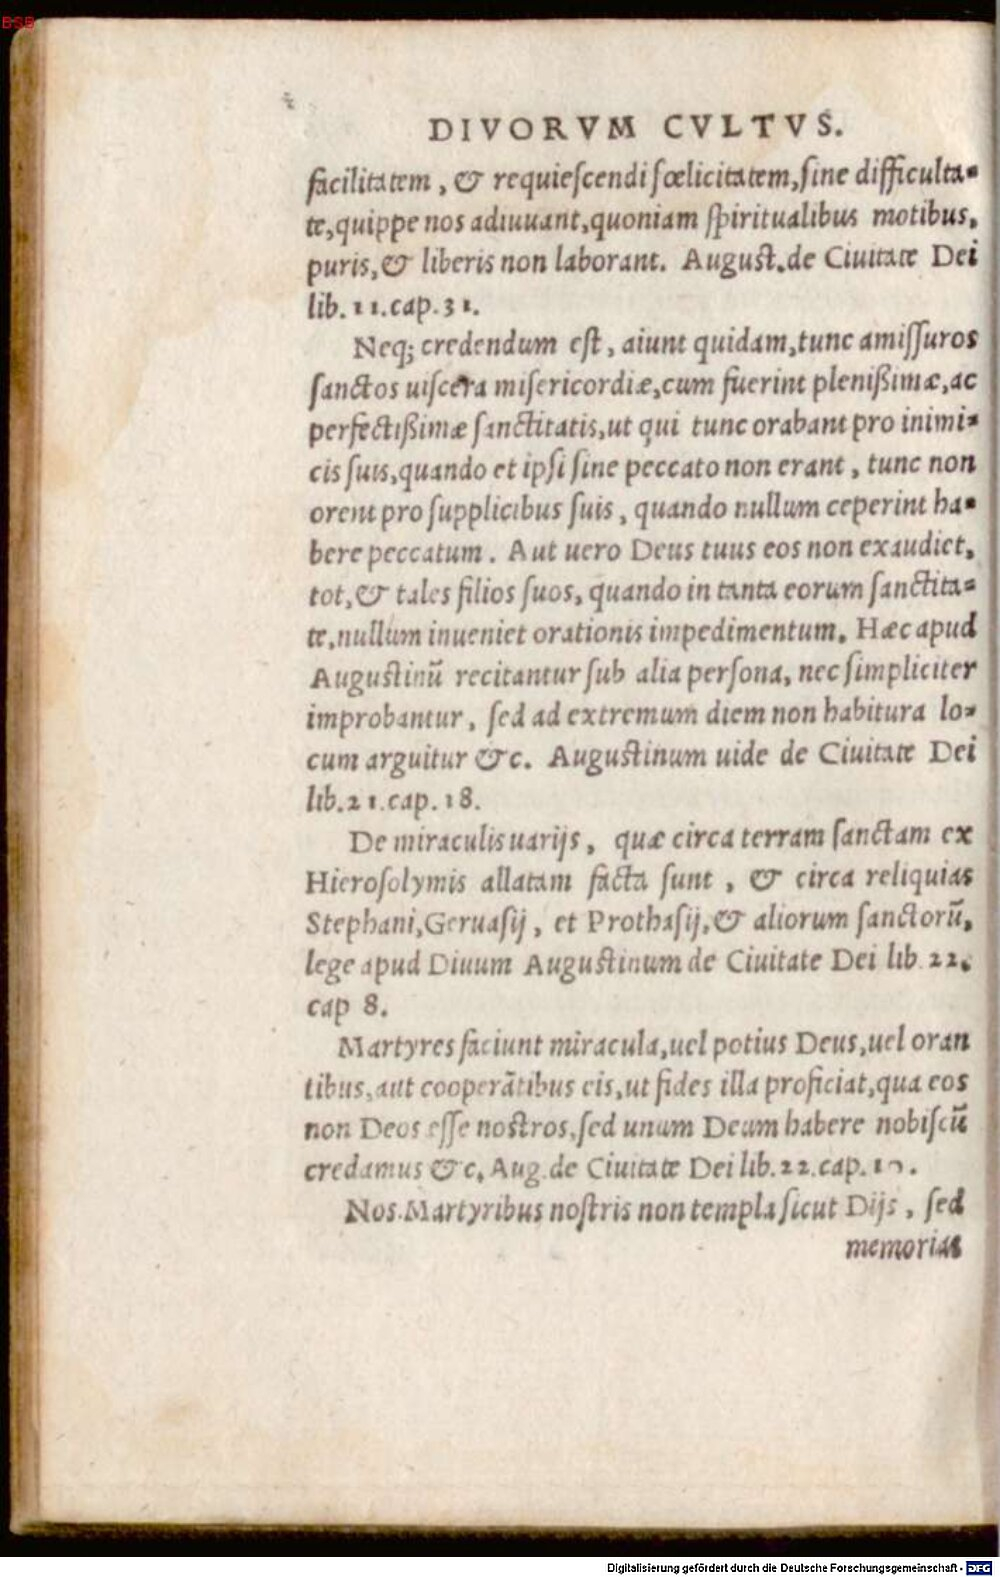 BSB
DIVORVM CVLTVS.
facilitatem, & requiescendi fœlicitatem, sine difficulta=
te, quippe nos adiuuant, quoniam spiritualibus motibus,
puris, & liberis non laborant. August. de Ciuitate Dei
lib. 11. cap. 31.
Neq; credendum est, aiunt quidam, tunc amissuros
sanctos uiscera misericordiæ, cum fuerint plenißimæ, ac
perfectißimæ sanctitatis, ut qui tunc orabant pro inimi=
cis suis, quando et ipsi sine peccato non erant, tunc non
orent pro supplicibus suis, quando nullum ceperint ha=
bere peccatum. Aut uero Deus tuus eos non exaudiet,
tot, & tales filios suos, quando in tanta eorum sanctita=
te, nullum inueniet orationis impedimentum. Hæc apud
Augustinū recitantur sub alia persona, nec simpliciter
improbantur, sed ad extremum diem non habitura lo=
cum arguitur &c. Augustinum uide de Ciuitate Dei
lib. 21. cap. 18.
De miraculis uarijs, quæ circa terram sanctam ex
Hierosolymis allatam facta sunt, & circa reliquias
Stephani, Geruasij, et Prothasij, & aliorum sanctorū,
lege apud Diuum Augustinum de Ciuitate Dei lib. 22.
cap 8.
Martyres faciunt miracula, uel potius Deus, uel oran
tibus, aut cooperātibus eis, ut fides illa proficiat, qua eos
non Deos esse nostros, sed unum Deum habere nobiscū
credamus &c. Aug. de Ciuitate Dei lib. 22. cap.
Nos Martyribus nostris non templa sicut Dijs, sed
memorias
Digitalisierung gefördert durch die Deutsche Forschungsgemeinschaft - DFG